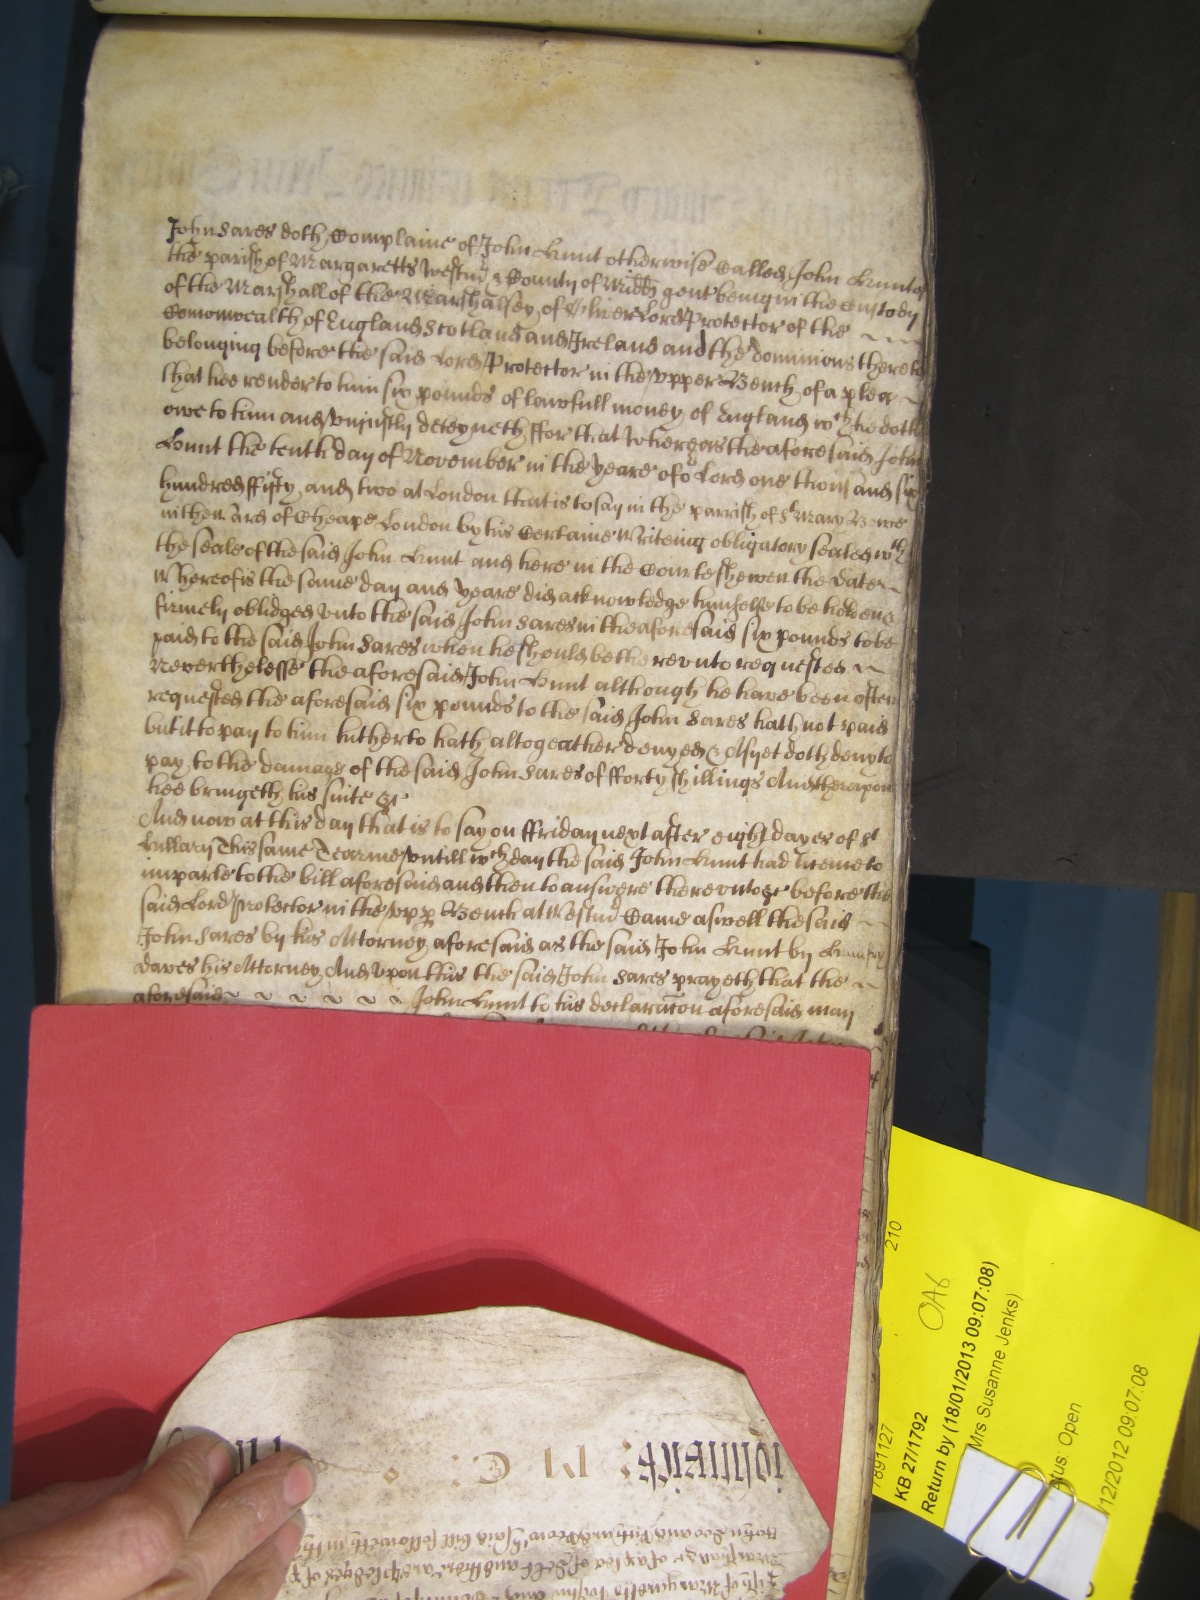 John Sares doth Complaine of John Hunt otherwise Called John Hunt of
the parish of Margaretts Westmr & County of Midd gent being in the Custody
of the Marshall of the Marshalsey of Oliver Lord Protector of the
Comonwealth of England Scotland and Ireland and the dominions thereto
belonging before the said Lord Protector in the vpper Bench of a plea
that hee render to him six pounds of lawfull money of England wch he doth
owe to him and vniustly deteyneth ffor that Whereas the aforesaid John
Hunt the tenth day of November in the yeare of or Lord one thousand six
hundred ffifty and two at London that is to say in the parrish of St Mary Bowe
in the Ward of Cheape London by his Certaine Writeing obligatory sealed wth
the seale of the said John Hunt and here in the Courte shewen the date
Whereof is the same day and yeare did acknowledge himselfe to be holden &
firmely obliged vnto the said John Sares in the aforesaid six pounds to be
paid to the said John Sares when he should be therevnto requested
Neverthelesse the aforesaid John Hunt although he have been often
requested the aforesaid six pounds to the said John Sares hath not paid
but it to pay to him hitherto hath altogeather denyed & As yet doth deny to
pay to the damage of the said John Sares of fforty shillings And therevpon
hee bringeth his suite &c
And now at this day that is to say on ffriday next after eight dayes of St
Hillary This same Tearme vntill wch day the said John Hunt had licence to
imparle to the bill aforesaid and then to answere therevnto &c before the
said Lord Protector in the vpp Bench at Westmr Came aswell the said
John Sares by his Attorney aforesaid as the said John Hunt by
daves his Attorney And vpon this the said John Sares prayeth that the
aforesaid John Hunt to his declaracon aforesaid may
210
OA6
7891127
KB 27/1792
Return by (18/01/2013 09:07:08)
Mrs Susanne Jenks)
Open
/12/2012 09:07:08